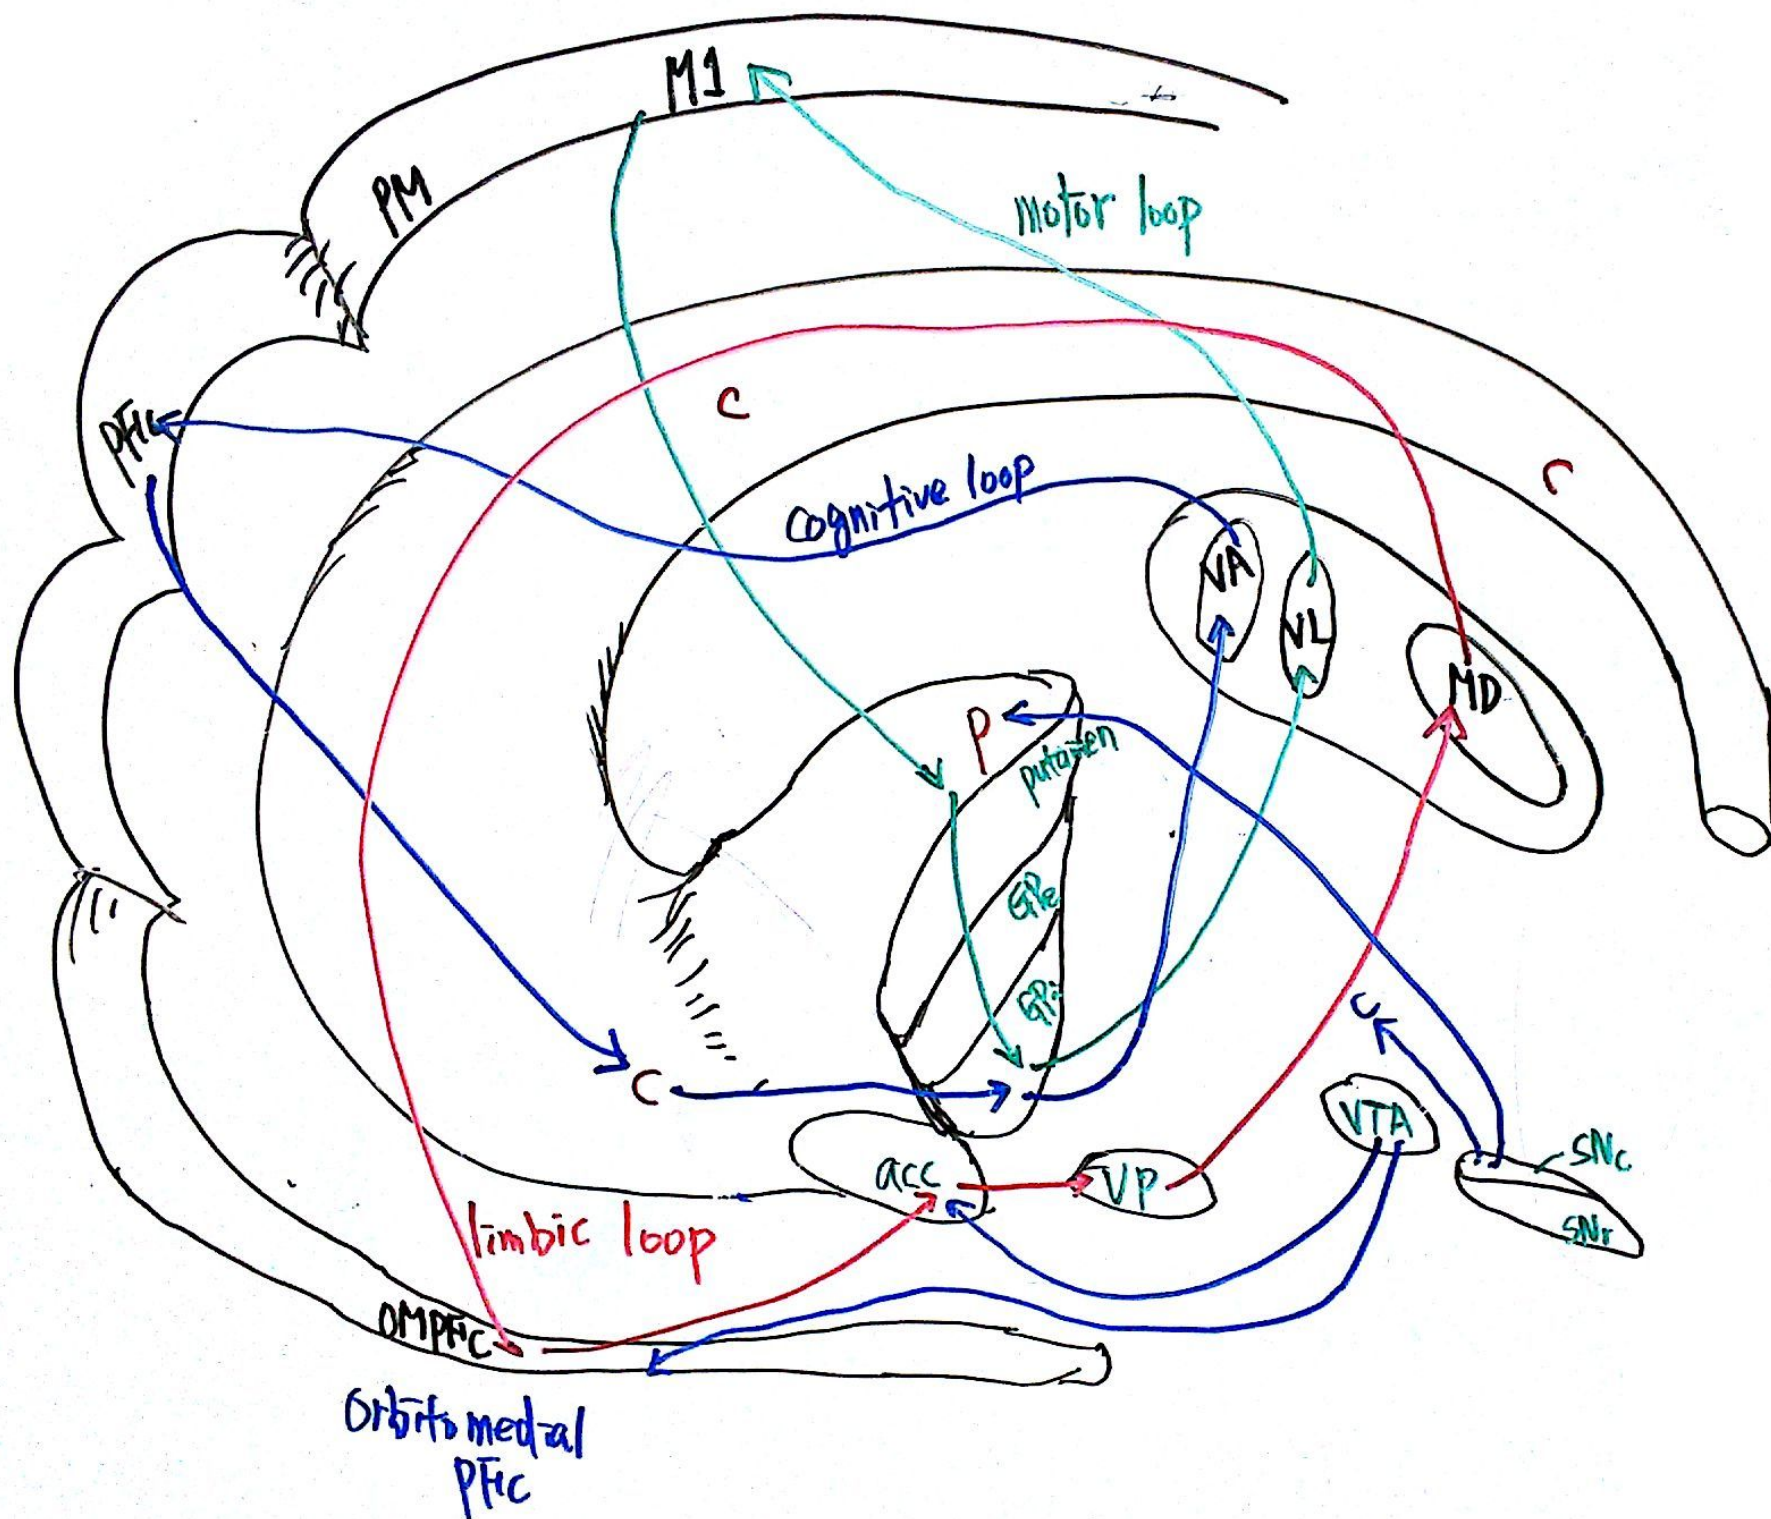 M1
PM
motor loop
C
PFC
C
cognitive loop
VA
VL
MD
P
putamen
GPe
GPi
C
C
VTA
SNc
acc
VP
SNr
limbic loop
OMPFC
Orbitomedial
PFC